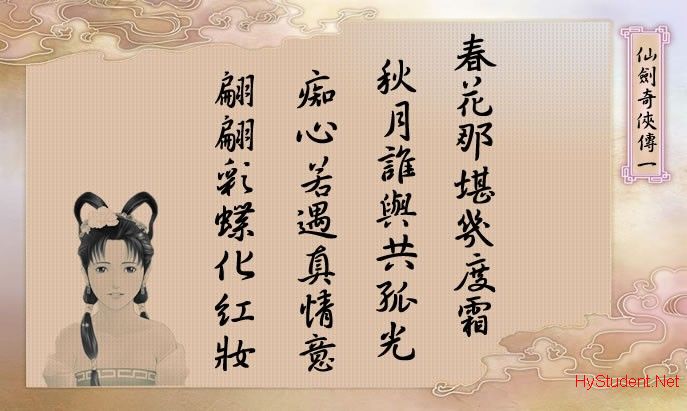 仙劍奇俠傳一
春花那堪幾度霜
秋月誰與共孤光
痴心若遇真情意
翩翩彩蝶化红妝
HyStudent.Net